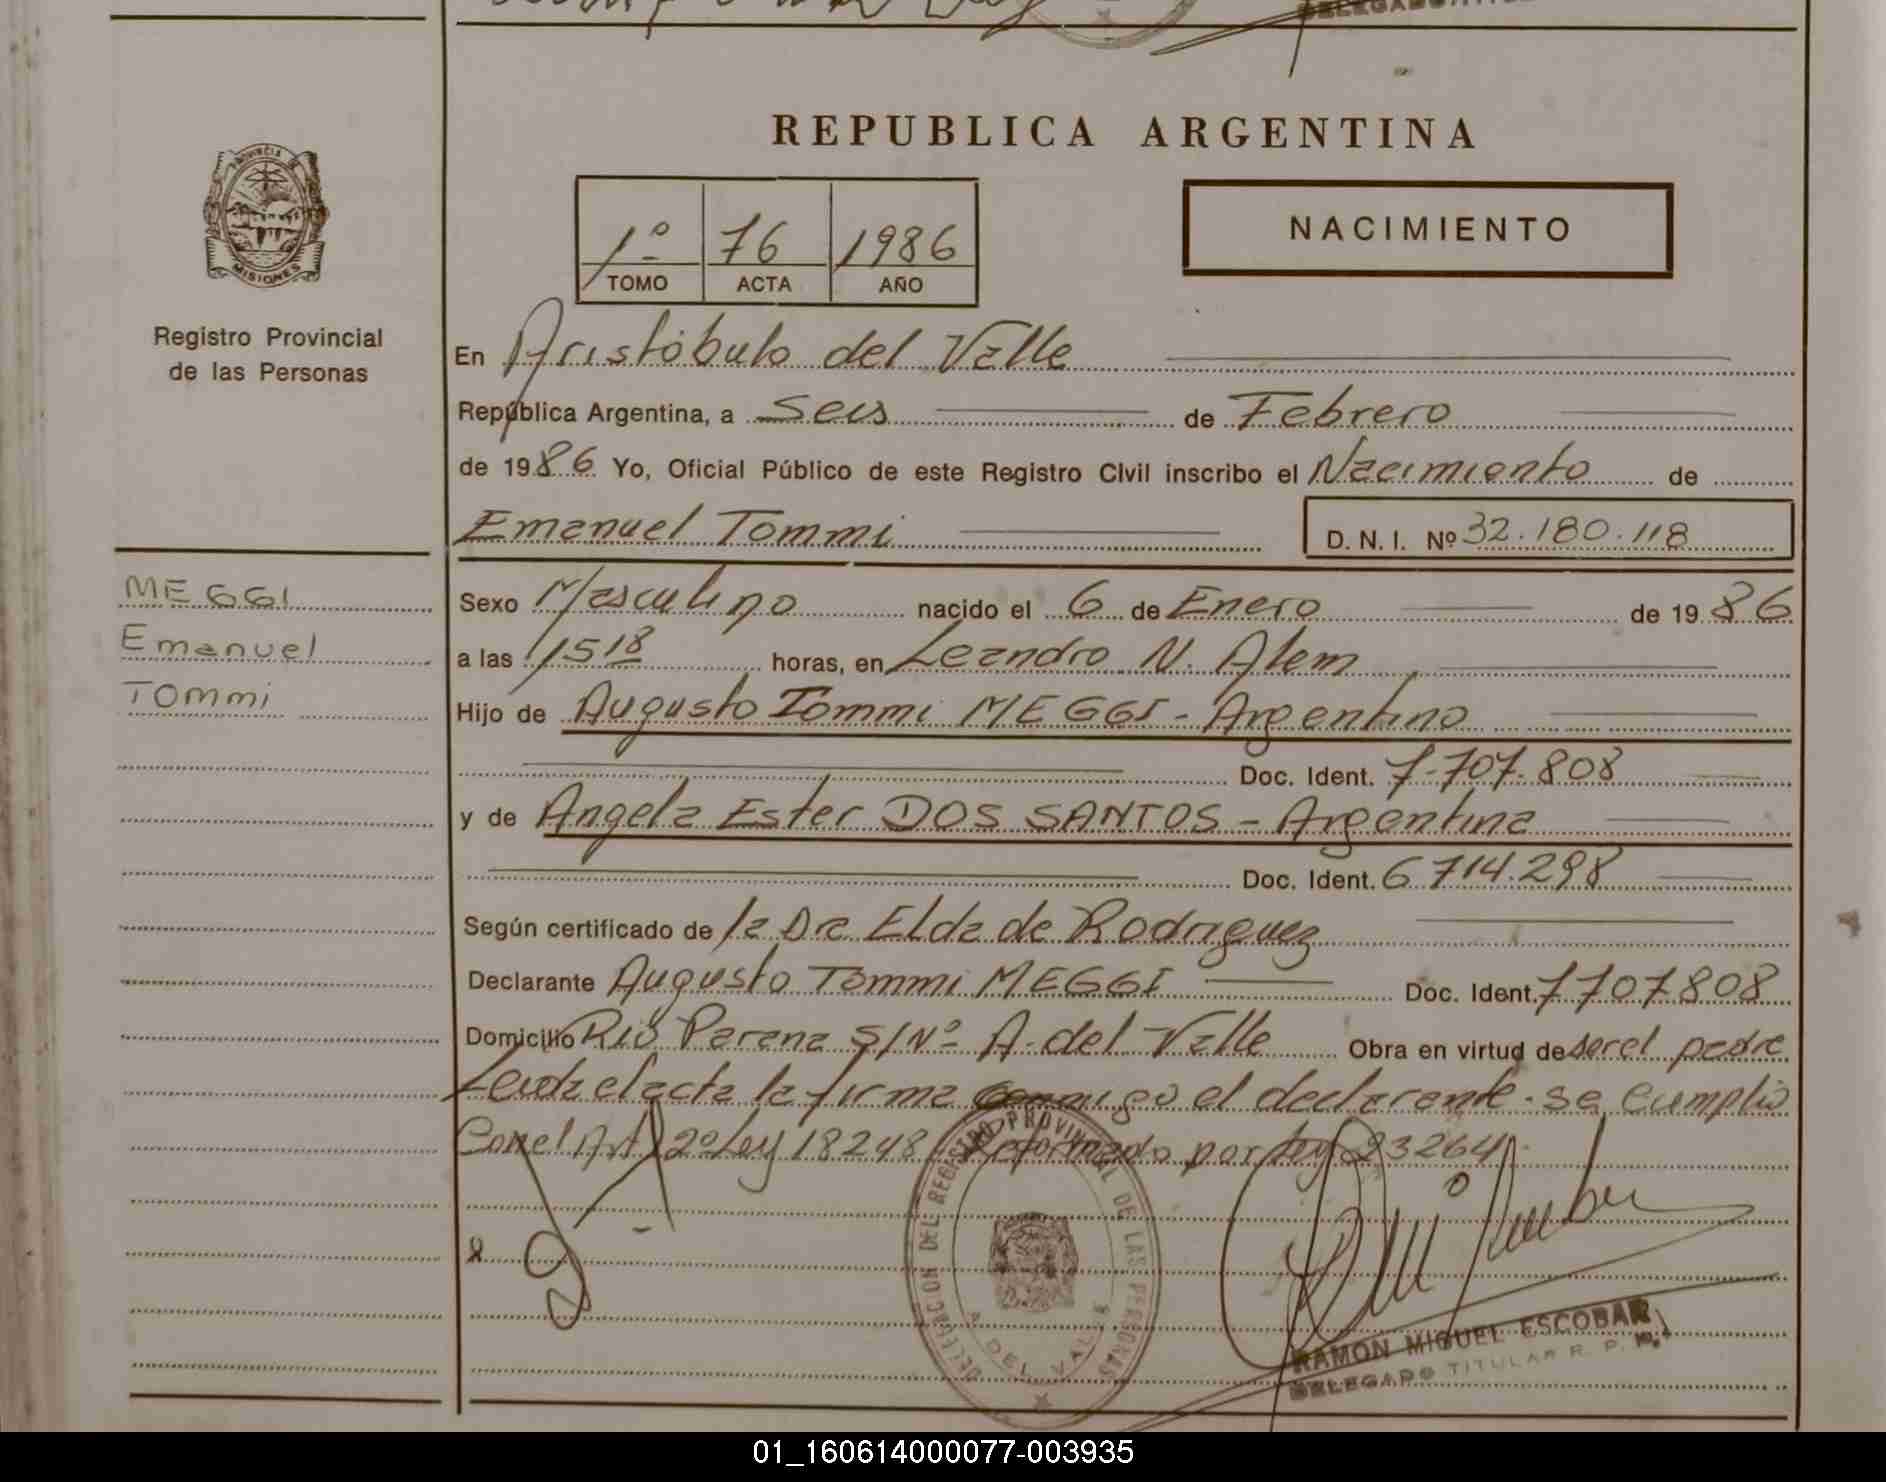 REPUBLICA ARGENTINA
PROVINCIA DE
MISIONES
Registro Provincial
de las Personas
1º 76 1986
TOMO ACTA AÑO
NACIMIENTO
En Aristóbulo del Valle
República Argentina, a Seis de Febrero
de 1986 Yo, Oficial Público de este Registro Civil inscribo el Nacimiento de
Emanuel Tommi
D. N. I. Nº 32.180.118
MEGGI
Emanuel
Tommi
Sexo Masculino nacido el 6 de Enero de 1986
a las 15 18 horas, en Leandro N. Alem
Hijo de Augusto Tommi MEGGI - Argentino
Doc. Ident. 7.707.808
y de Angela Ester DOS SANTOS - Argentina
Doc. Ident. 6714.298
Según certificado de la Dra Elda de Rodriguez
Declarante Augusto Tommi MEGGI Doc. Ident. 7707808
Domicilio Rio Parana S/Nº A. del Valle Obra en virtud de ser el padre
Leida el acta la firma conmigo el declarante. se cumplió
Con el Art 2º Ley 18248 Reformado por Ley 23264.
DELEGACION DEL REGISTRO PROVINCIAL DE LAS PERSONAS
A. DEL VALLE
RAMON MIGUEL ESCOBAR
DELEGADO TITULAR R. P. P.
01_160614000077-003935